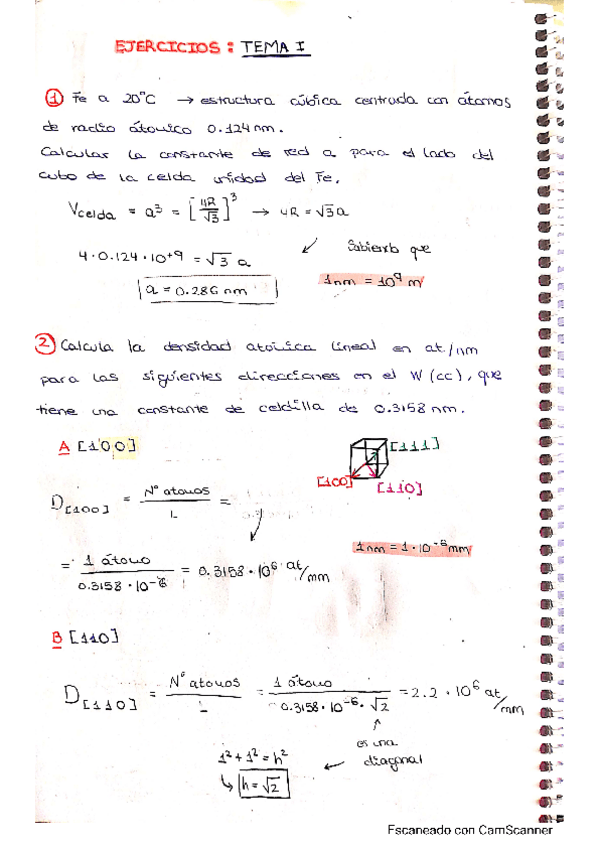 EJERCICIOS: TEMA I
① Fe a 20°C → estructura cúbica centrada con átomos
de radio átomico 0.124 nm.
Calcular la constante de red a para el lado del
cubo de la celda unidad del Fe.
Vcelda = a³ = [4R/√3]³ → 4R = √3 a
4·0.124·10⁺⁹ = √3 a
Sabiendo que
a = 0.286 nm
1nm = 10⁹ m
② Calcula la densidad atómica lineal en at/nm
para las siguientes direcciones en el W (cc), que
tiene una constante de celdilla de 0.3158 nm.
A [100]
[111]
[100]
[110]
D[100] = Nº atomos / L =
1nm = 1·10⁻⁶ mm
= 1 átomo / 0.3158·10⁻⁶ = 0.3158·10⁶ at/mm
B [110]
D[110] = Nº atomos / L = 1 átomo / 0.3158·10⁻⁶·√2 = 2.2·10⁶ at/mm
es una
diagonal
1² + 1² = h²
h = √2
Escaneado con CamScanner